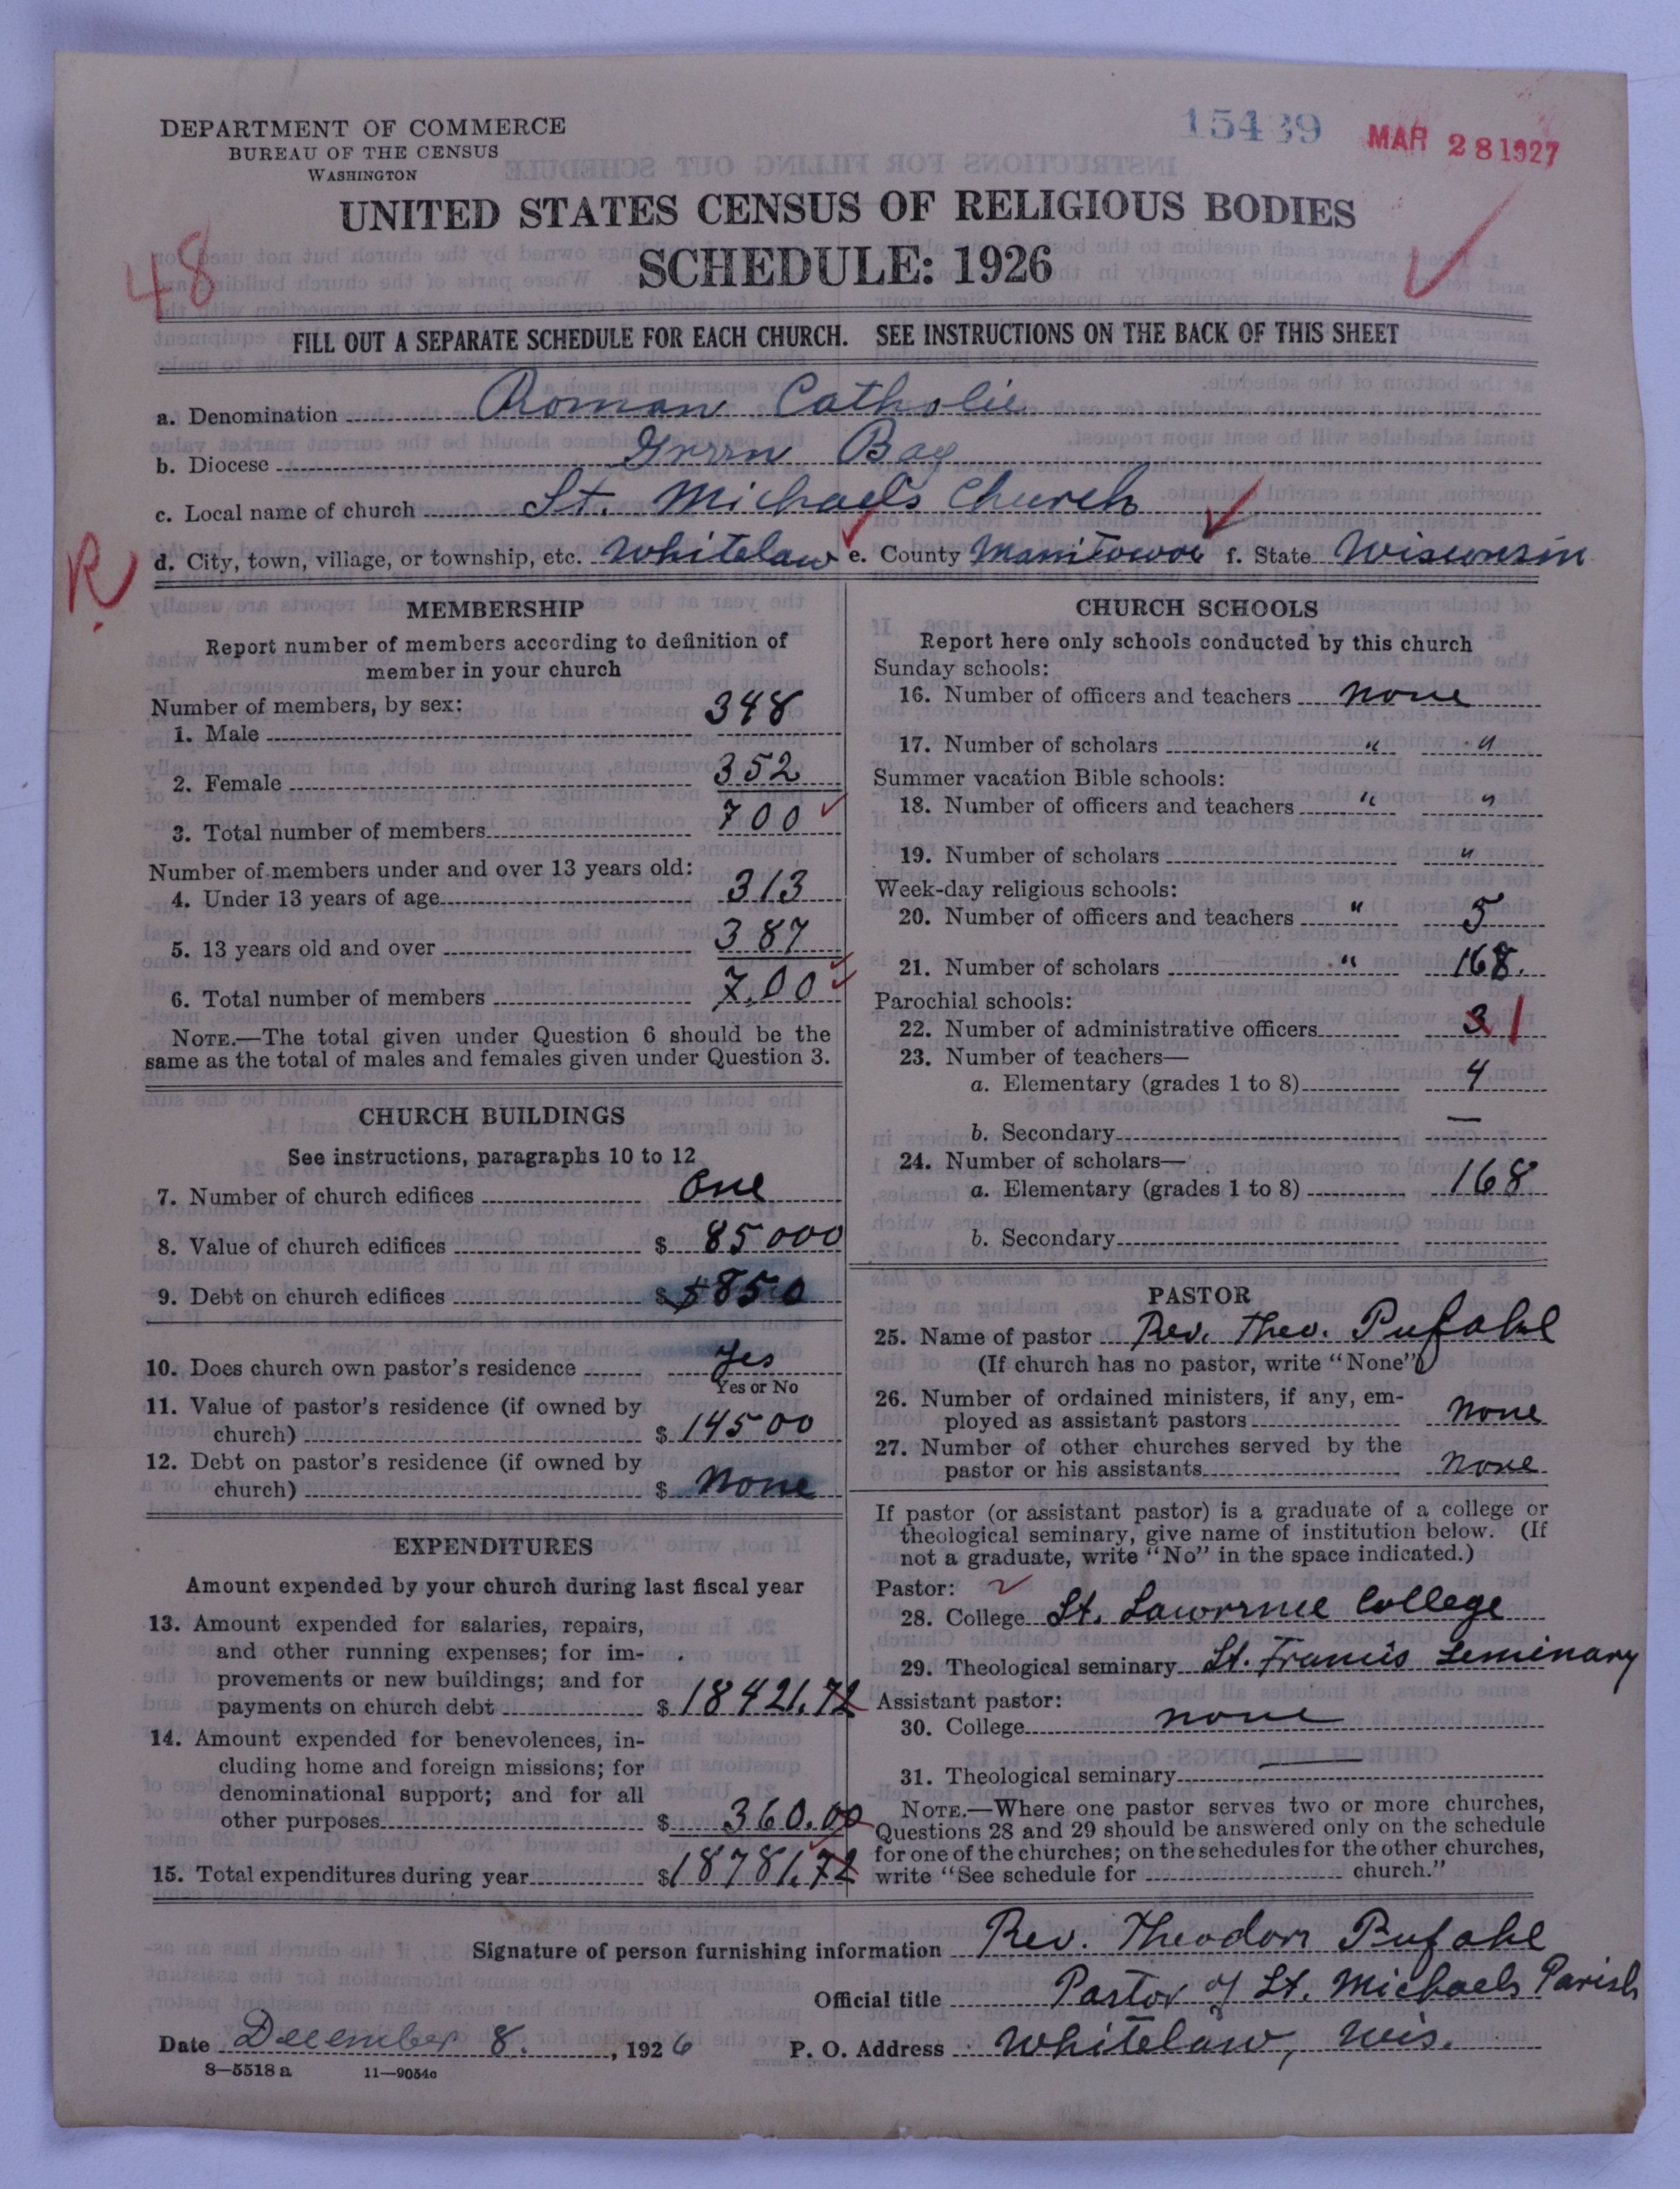 DEPARTMENT OF COMMERCE
BUREAU OF THE CENSUS
WASHINGTON
15439
MAR 28 1927
UNITED STATES CENSUS OF RELIGIOUS BODIES
SCHEDULE: 1926
48
FILL OUT A SEPARATE SCHEDULE FOR EACH CHURCH. SEE INSTRUCTIONS ON THE BACK OF THIS SHEET
a. Denomination Roman Catholic
b. Diocese Green Bay
c. Local name of church St. Michaels Church
R
d. City, town, village, or township, etc. Whitelaw e. County Manitowoc f. State Wisconsin
MEMBERSHIP
Report number of members according to definition of
member in your church
Number of members, by sex:
1. Male 348
2. Female 352
3. Total number of members 700
Number of members under and over 13 years old:
4. Under 13 years of age 313
5. 13 years old and over 387
6. Total number of members 700
NOTE.—The total given under Question 6 should be the
same as the total of males and females given under Question 3.
CHURCH BUILDINGS
See instructions, paragraphs 10 to 12
7. Number of church edifices One
8. Value of church edifices $ 85000
9. Debt on church edifices $ 850
10. Does church own pastor's residence Yes
Yes or No
11. Value of pastor's residence (if owned by
church) $ 14500
12. Debt on pastor's residence (if owned by
church) $ None
EXPENDITURES
Amount expended by your church during last fiscal year
13. Amount expended for salaries, repairs,
and other running expenses; for im-
provements or new buildings; and for
payments on church debt $ 18421.72
14. Amount expended for benevolences, in-
cluding home and foreign missions; for
denominational support; and for all
other purposes $ 360.00
15. Total expenditures during year $ 18781.72
CHURCH SCHOOLS
Report here only schools conducted by this church
Sunday schools:
16. Number of officers and teachers none
17. Number of scholars " "
Summer vacation Bible schools:
18. Number of officers and teachers " "
19. Number of scholars "
Week-day religious schools:
20. Number of officers and teachers " 5
21. Number of scholars " 168.
Parochial schools:
22. Number of administrative officers 3 1
23. Number of teachers—
a. Elementary (grades 1 to 8) 4
b. Secondary —
24. Number of scholars—
a. Elementary (grades 1 to 8) 168
b. Secondary
PASTOR
25. Name of pastor Rev. Theo. Pufahl
(If church has no pastor, write "None")
26. Number of ordained ministers, if any, em-
ployed as assistant pastors None
27. Number of other churches served by the
pastor or his assistants None
If pastor (or assistant pastor) is a graduate of a college or
theological seminary, give name of institution below. (If
not a graduate, write "No" in the space indicated.)
Pastor:
28. College St. Lawrence College
29. Theological seminary St. Francis Seminary
Assistant pastor:
30. College none
31. Theological seminary —
NOTE.—Where one pastor serves two or more churches,
Questions 28 and 29 should be answered only on the schedule
for one of the churches; on the schedules for the other churches,
write "See schedule for church."
Signature of person furnishing information Rev. Theodore Pufahl
Official title Pastor of St. Michaels Parish
Date December 8. , 1926 P. O. Address Whitelaw, Wis.
8—5518 a 11—9054c